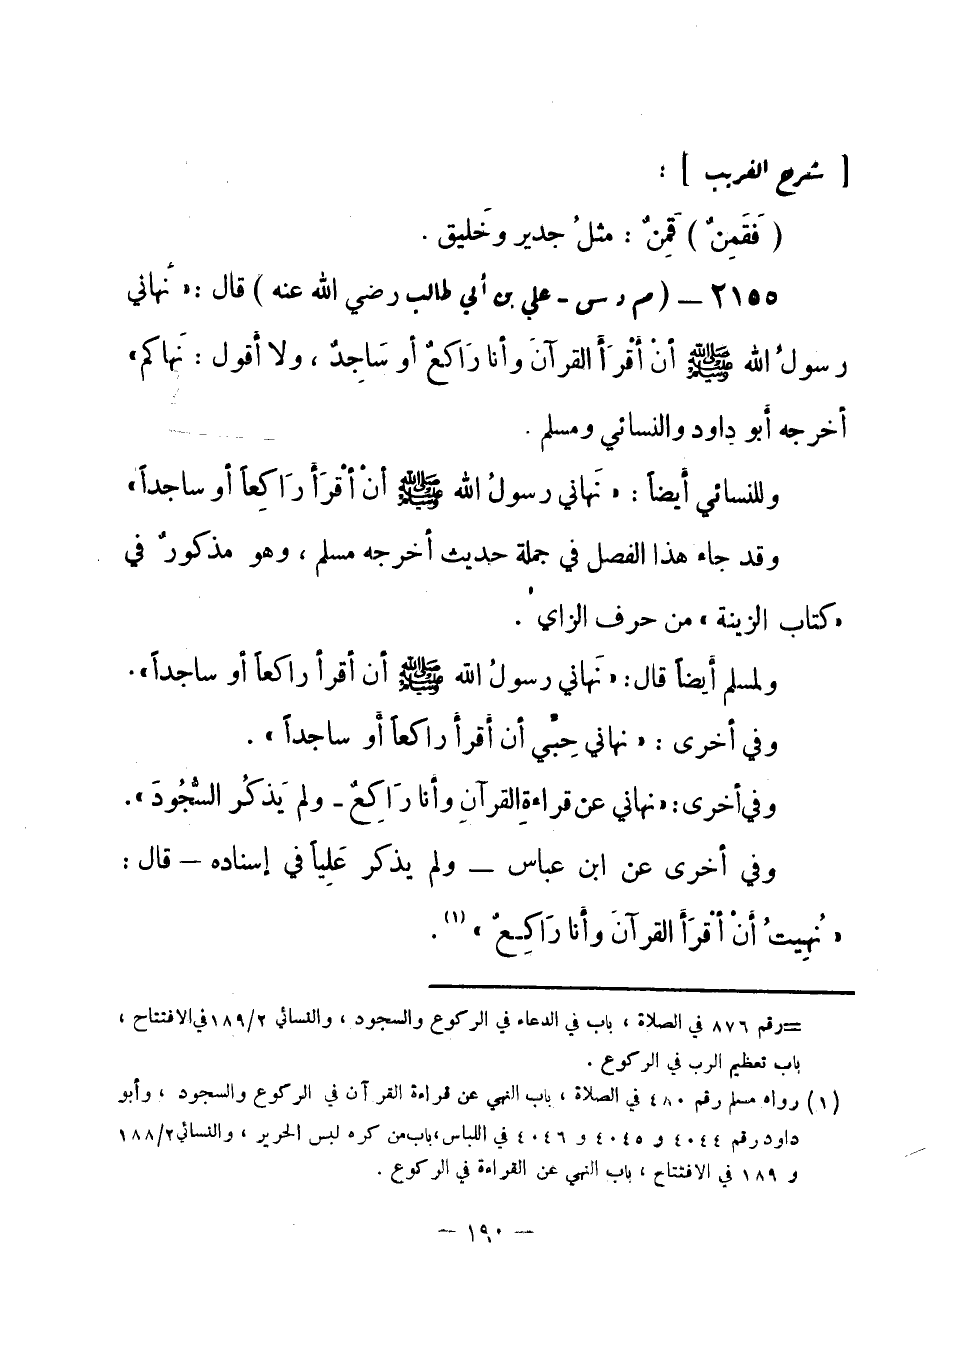 [ شرح الغريب ] :
( فَقَمِنٌ ) قَمِنٌ : مثلُ جدير وخَليق .
٢١٥٥ — ( م د س - علي بن أبي طالب رضي الله عنه ) قال : « نَهاني
رسولُ الله ﷺ أنْ أقْرَأَ القرآنَ وأنا رَاكعٌ أو سَاجِدٌ ، ولا أقول : نَهاكم »
أخرجه أبو داود والنسائي ومسلم .
وللنسائي أيضاً : « نَهاني رسولُ الله ﷺ أنْ أقْرَأَ رَاكِعاً أو ساجداً »
وقد جاء هذا الفصل في جملة حديث أخرجه مسلم ، وهو مذكورٌ في
« كتاب الزينة » من حرف الزاي .
ولمسلم أيضاً قال : « نَهاني رسولُ الله ﷺ أن أقرأ راكعاً أو ساجداً » .
وفي أخرى : « نهاني حِبِّي أن أقرأ راكعاً أو ساجداً » .
وفي أخرى : « نهاني عن قراءةِ القرآنِ وأنا رَاكِعٌ - ولم يَذكُر السُّجُودَ » .
وفي أخرى عن ابن عباس — ولم يذكر عَلِياً في إسناده — قال :
« نُهِيتُ أنْ أقْرَأَ القرآنَ وأنا رَاكِـعٌ » (١) .
= رقم ٨٧٦ في الصلاة ، باب في الدعاء في الركوع والسجود ، والنسائي ١٨٩/٢ في الافتتاح ،
باب تعظيم الرب في الركوع .
(١) رواه مسلم رقم ٤٨٠ في الصلاة ، باب النهي عن قراءة القرآن في الركوع والسجود ، وأبو
داود رقم ٤٠٤٤ و ٤٠٤٥ و ٤٠٤٦ في اللباس ، باب من كره لبس الحرير ، والنسائي ١٨٨/٢
و ١٨٩ في الافتتاح ، باب النهي عن القراءة في الركوع .
— ١٩٠ —